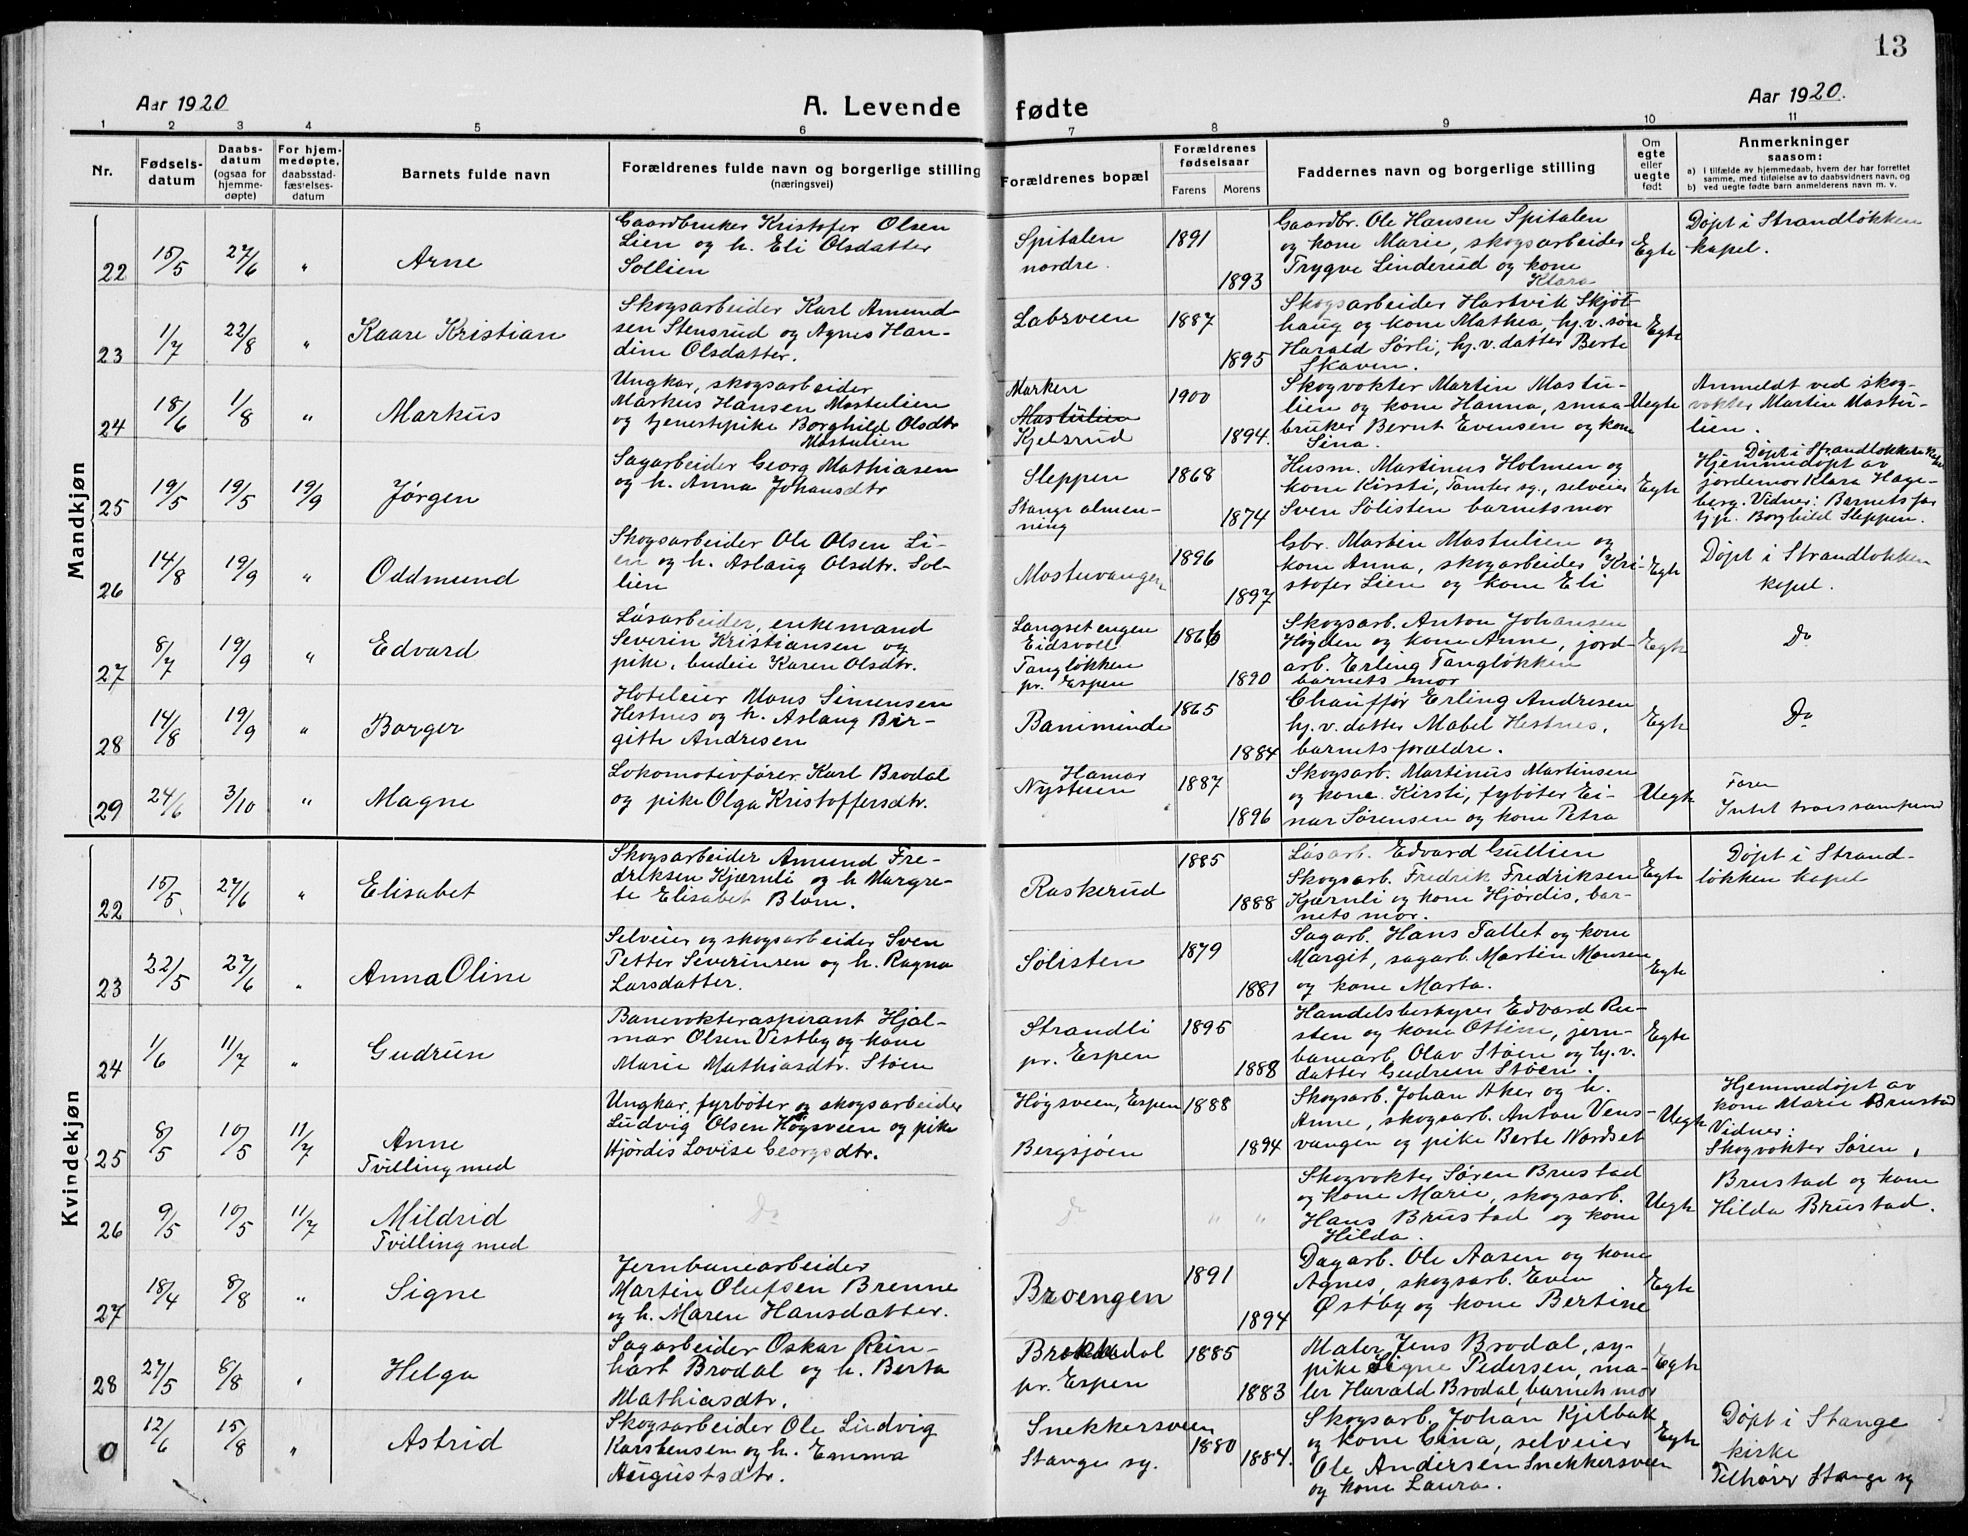 13
Aar 1920
A. Levende fødte
Aar 1920.
1 2 3 4 5 6 7 8 9 10 11
Nr.
Fødsels-
datum
Daabs-
datum
(ogsaa for
hjemme-
døpte)
For hjem-
medøpte,
daabsstad-
fæstelses-
datum
Barnets fulde navn
Forældrenes fulde navn og borgerlige stilling
(næringsvei)
Forældrenes bopæl
Forældrenes
fødselsaar
Farens Morens
Faddernes navn og borgerlige stilling
Om
egte
eller
uegte
født
Anmerkninger
saasom:
a) i tilfælde av hjemmedaab, hvem der har forrettet
samme, med tilføielse av to daabsvidners navn, og
b) ved uegte fødte barn anmelderens navn m. v.
Mandkjøn
22 15/5 27/6 " Arne
Gaardbruker Kristofer Olsen
Lien og h. Eli Olsdatter
Sollien
Spitalen
nordre.
1891
1893
Gaardbr. Ole Hansen Spitalen
og kone Marie, skogsarbeider
Trygve Linderud og kone
Klara
Egte
Døpt i Strandløkken
kapel.
23 1/7 22/8 " Kaare Kristian
Skogsarbeider Karl Amund-
sen Stensrud og Agnes Han-
dine Olsdatter.
Labsveen
1887
1895
Skogsarbeider Hartvik Skjøt-
haug og kone Mathea, hj.v. søn
Harald Sørli, hj.v. datter Berte
Skaven.
Egte
24 18/6 1/8 " Markus
Ungkar, skogsarbeider
Markus Hansen Mostulien
og tjenestepike Borghild Olsdtr
Mostulien
Marken
Mostulien
Kjelsrud
1900
1894.
Skogvokter Martin Mostu-
lien og kone Hanna, smaa-
bruker Bernt Evensen og kone
Sina.
Uegte
Anmeldt ved skog-
vokter Martin Mostu-
lien.
25 19/5 19/5 19/9 Jørgen
Sagarbeider Georg Mathiasen
og h. Anna Johansdtr
Sleppen
Stange almen-
ning
1868
1874
Husm. Martinus Holmen og
kone Kirsti, Tomter sg., selveier
Sven Sølisten barnets mor
Egte
Døpt i Strandløkken
Hjemmedøpt av
jordemor Klara Hage-
berg. Vidner: Barnets far
tjp. Borghild Sleppen.
26 14/8 19/9 " Oddmund
Skogsarbeider Ole Olsen Li-
en og h. Aslaug Olsdtr. Sol-
lien
Mostuvangen
1896
1897
Gbr. Martin Mostulien og
kone Anna, skogarbeider Kri-
stofer Lien og kone Eli
Egte
Døpt i Strandløkken
kapel.
27 8/7 19/9 " Edvard
Løsarbeider, enkemand
Severin Kristiansen og
pike, budeie Karen Olsdtr.
Langset engen
Eidsvoll
Tangløkken
pr. Espen
1866
1890
Skogsarb. Anton Johansen
Høgden og kone Anne, jord-
arb. Erling Tangløkken
barnets mor
Egte
Do
28 14/8 19/9 " Borger
Hoteleier Mons Simensen
Hestnes og h. Aslaug Bir-
gitte Andresen
Baniminde
1865
1884
Chauffør Erling Andresen
hj.v. datter Mabel Hestnes,
barnets forældre.
Egte
Do
29 24/6 3/10 " Magne
Lokomotivfører Karl Brodal
og pike Olga Kristoffersdtr.
Hamar
Nystuen
1887
1896
Skogsarb. Martinus Martinsen
og kone Kirsti, fyrbøter Ei-
nar Sørensen og kone Petra
Uegte
Faren
Intet trossamfund
Kvindekjøn
22 15/5 27/6 " Elisabet
Skogsarbeider Amund Fre-
driksen Kjærnli og h. Margre-
te Elisabet Blom.
Raskerud
1885
1888
Løsarb. Edvard Gullien
Skogsarb. Fredrik Fredriksen
Kjærnli og kone Hjørdis, bar-
nets mor.
Egte
Døpt i Strand-
løkken kapel
23 22/5 27/6 " Anna Oline
Selveier og skogsarbeider Sven
Petter Severinsen og h. Ragna
Larsdatter.
Sølisten
1879
1881
Sagarb. Hans Tallet og kone
Margit, sagarb. Martin Monsen
og kone Marta.
Egte
24 1/6 11/7 " Gudrun
Banevokteraspirant Hjal-
mar Olsen Vestby og kone
Marie Mathiasdtr. Støen
Strandli
pr. Espen
1895
1888
Handelsbestyrer Edvard Ru-
sten og kone Ottine, jern-
banearb. Olav Støen og hj.v.
datter Gudrun Støen.
Egte
25 8/5 10/5 11/7 Anne
Tvilling med
Ungkar, fyrbøter og skogsarbeider
Ludvig Olsen Høgsveen og pike
Hjørdis Lovise Georgsdtr.
Høgsveen, Espen
Bergsjøen
1888
1894
Skogsarb. Johan Aker og h.
Anne, skogsarb. Anton Vens-
vangen og pike Berte Nordset
Uegte
Hjemmedøpt av
kone Marie Brustad
Vidner:
Skogvokter Søren,
26 9/5 10/5 11/7 Mildrid
Tvilling med
Do
Do " "
Skogvokter Søren Brustad
og kone Marie, skogsarb.
Hans Brustad og kone
Hilda.
Uegte
Brustad og kone
Hilda Brustad.
27 18/4 8/8 " Signe
Jernbanearbeider
Martin Olufsen Brenne
og h. Maren Hansdatter.
Broengen
1891
1894
Dagarb. Ole Aasen og kone
Agnes, skogsarb. Even
Østby og kone Bertine
Egte
28 27/5 8/8 " Helga
Sagarbeider Oskar Rein-
hart Brodal og h. Berta
Mathiasdtr.
pr. Espen
1885
1883
Maler Jens Brodal, sy-
pike Signe Pedersen, ma-
ler Harald Brodal, barnets mor
Egte
0 12/6 15/8 " Astrid
Skogsarbeider Ole Ludvig
Karstensen og h. Emma
Augustsdtr.
Snekkersveen
Stange sg.
1880
1884.
Skogsarb. Johan Kjelbakk
og kone Gina, selveier
Ole Andersen Snekkersveen
og kone Laura.
Egte
Døpt i Stange
kirke
Tilhører Stange sg